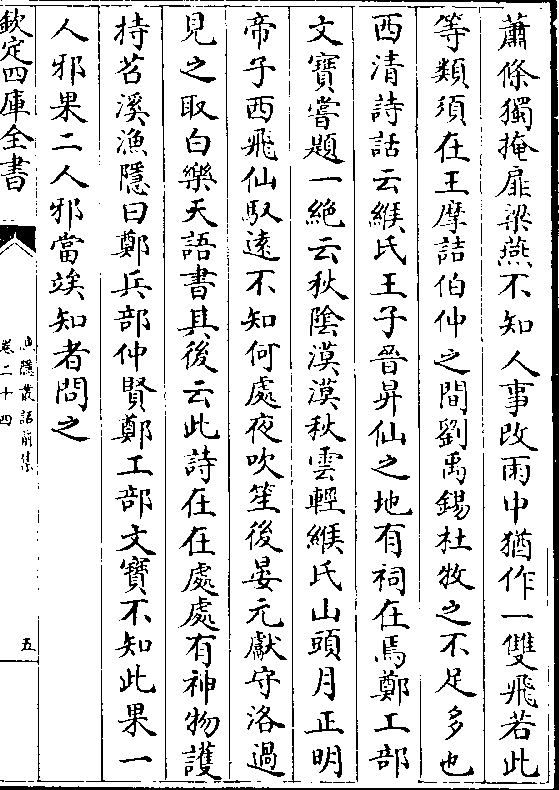 蕭條獨掩扉梁燕不知人事改雨中猶作一雙飛若此
等類須在王摩詰伯仲之間劉禹錫杜牧之不足多也
西清詩話云緱氏王子晉昇仙之地有祠在焉鄭工部
文寶嘗題一絶云秋陰漠漠秋雲輕緱氏山頭月正明
帝子西飛仙馭逺不知何處夜吹笙後晏元獻守洛過
見之取白樂天語書其後云此詩在在處處有神物護
持苕溪漁隱曰鄭兵部仲賢鄭工部文寶不知此果一
人邪果二人邪當竢知者問之
欽定四庫全書
漁隱叢話前集
卷二十四
五